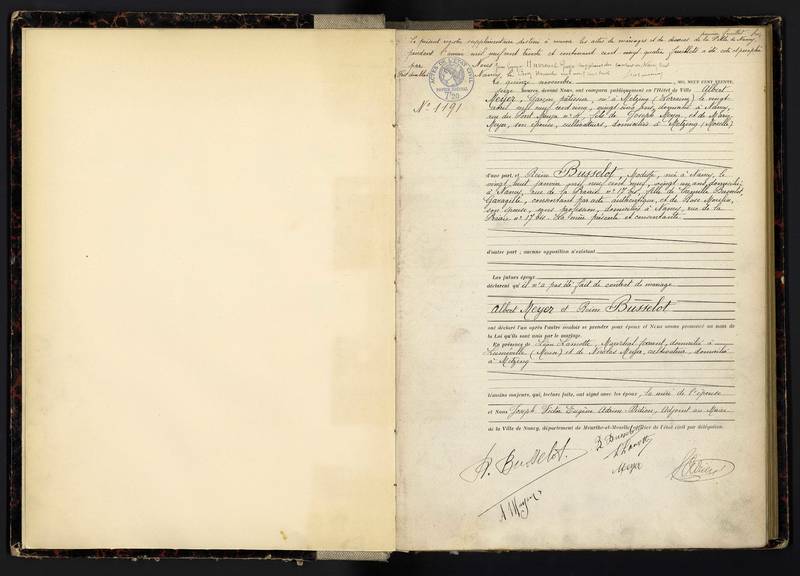 premier feuillet
Le présent registre supplémentaire destiné à recevoir les actes de mariages et de divorces de la Ville de Nancy,
pendant l'année mil neuf cent trente et contenant cent vingt quatre feuillets a été coté et paraphé
par Nous
Nancy, le
ACTES DE L'ÉTAT CIVIL
N° 1191
Le quinze novembre MIL NEUF CENT TRENTE,
seize heures, devant Nous, ont comparu publiquement en l'Hôtel de Ville Albert
Meyer, Garçon pâtissier, né à Metzing (Lorraine) le vingt
mil neuf cent cinq, vingt cinq ans, domicilié à Nancy,
rue du Pont Mouja n° fils de Joseph Meyer, et de Marie
Meyer, son épouse, cultivateurs, domiciliés à Metzing (Moselle)
d'une part, et Reine Busselot, Modiste, née à Nancy, le
vingt huit janvier mil neuf cent neuf, vingt un ans, domiciliée
à Nancy, rue de la Prairie n° 17 bis, fille de Camille Busselot,
Garagiste, consentant par acte authentique, et de Rose
son épouse, sans profession, domiciliés à Nancy, rue de la
Prairie n° 17 bis. La mère présente et consentante.
d'autre part ; aucune opposition n'existant
Les futurs époux
déclarent qu'il n'a pas été fait de contrat de mariage
Albert Meyer et Reine Busselot
ont déclaré l'un après l'autre vouloir se prendre pour époux et Nous avons prononcé au nom de
la Loi qu'ils sont unis par le mariage.
En présence de Léon Lamotte, Maréchal ferrant, domicilié à
Lunéville et de Nicolas Meyer, cultivateur, domicilié
à Metzing
témoins majeurs, qui, lecture faite, ont signé avec les époux, la mère de l'épouse
et Nous Joseph Victor Eugène Adjoint au Maire
de la Ville de Nancy, département de Meurthe-et-Moselle, officier de l'état civil par délégation.
R. Busselot
Meyer
A Meyer